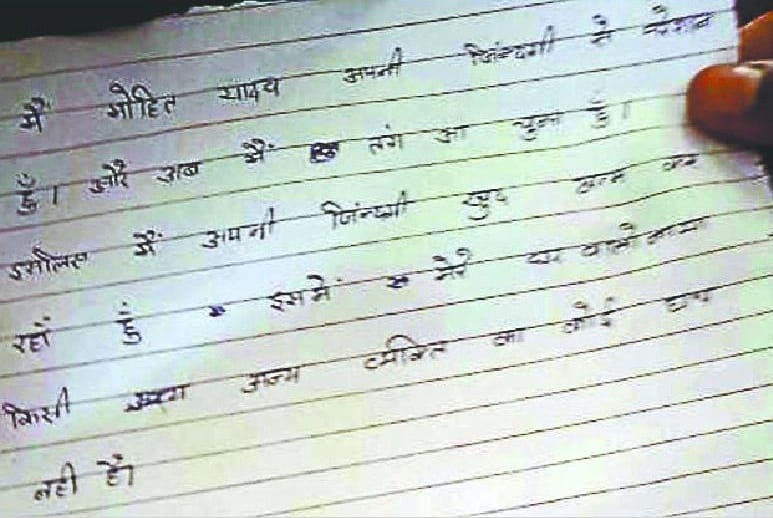 मैं मोहित यादव अपनी जिंन्दगी से परेशान
हूँ। और अब मैं तंग आ चुका हूँ।
इसलिए मैं अपनी जिंन्दगी खुद खत्म कर
रहाँ हूँ इसमें मेरे घर वालो
किसी अन्य व्यक्ति का कोई हाथ
नही हैं।